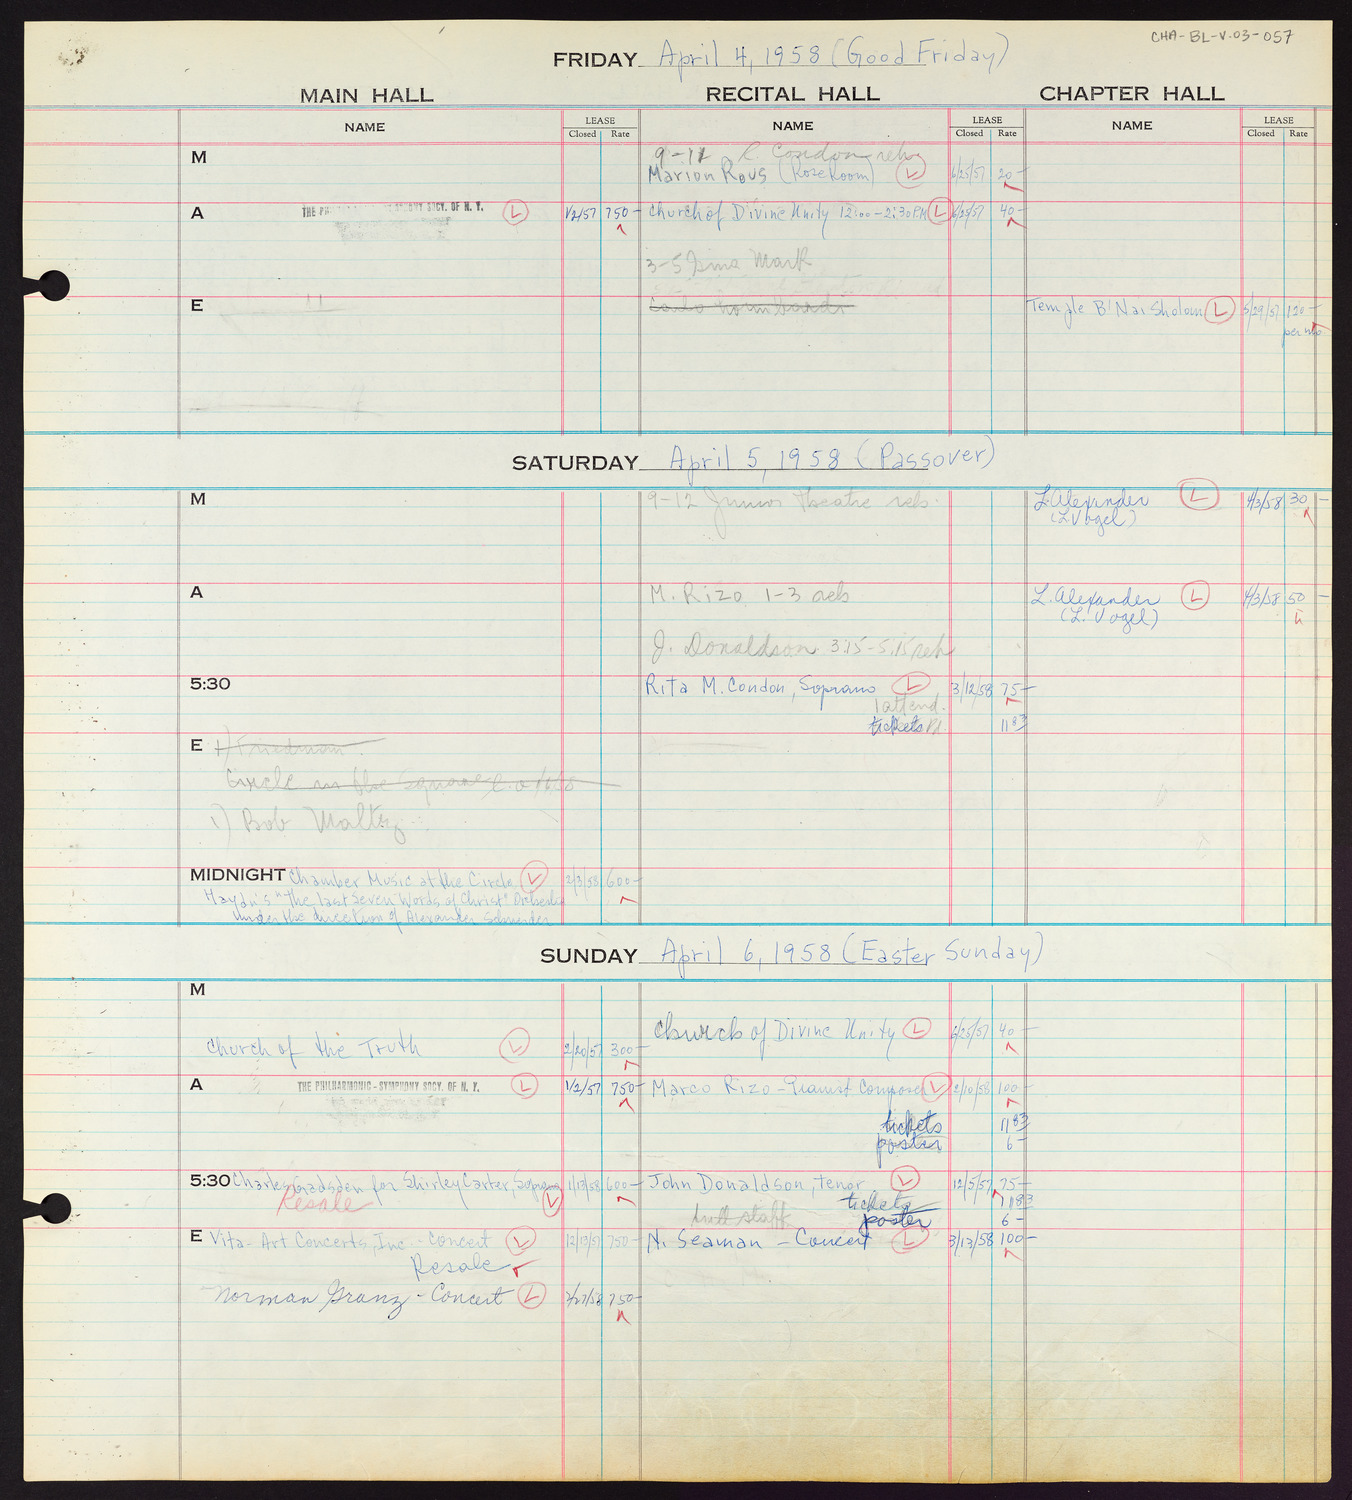 CHA-BL-V.03-057
FRIDAY April 4, 1958 (Good Friday)
MAIN HALL RECITAL HALL CHAPTER HALL
NAME LEASE Closed Rate NAME LEASE Closed Rate NAME LEASE Closed Rate
M 9-12 R. Condon reh
Marion Rous (Rose Room) L 6/25/57 20-
A THE PHILHARMONIC-SYMPHONY SOCY. OF N. Y. L 1/2/57 750- Church of Divine Unity 12:00-2:30 P.M. L 6/25/57 40-
3-5 Mark
E Temple B'Nai Sholom L 5/29/57 120-
per mo
SATURDAY April 5, 1958 (Passover)
M 9-12 Junior Theatre reh. L. Alexander L 4/3/58 30-
(L. Vogel)
A M. Rizo 1-3 reh L. Alexander L 4/3/58 50-
(L. Vogel)
J. Donaldson 3:15-5:15 reh
5:30 Rita M. Condon, Soprano L 3/12/58 75-
1 attend.
tickets Pd 11 83
E 1) Friedman
Circle in the Square
1) Bob Maltz
MIDNIGHT Chamber Music at the Circle L 2/3/58 600-
Haydn's "The last Seven Words of Christ" Orchestra
under the direction of Alexander Schneider
SUNDAY April 6, 1958 (Easter Sunday)
M
Church of Divine Unity L 6/25/57 40-
Church of the Truth L 2/20/57 300-
A THE PHILHARMONIC-SYMPHONY SOCY. OF N. Y. L 1/2/57 750- Marco Rizo-Pianist Composer L 2/10/58 100-
tickets 11 83
poster 6-
5:30 Charles Gadsden for Shirley Carter, Soprano L 1/13/58 600- John Donaldson, tenor L 12/5/57 75-
Resale tickets 11 83
full staff poster 6-
E Vita-Art Concerts, Inc. - Concert L 12/13/57 750- N. Seaman - Concert L 3/13/58 100-
Resale
Norman Granz - Concert L 2/27/58 750-